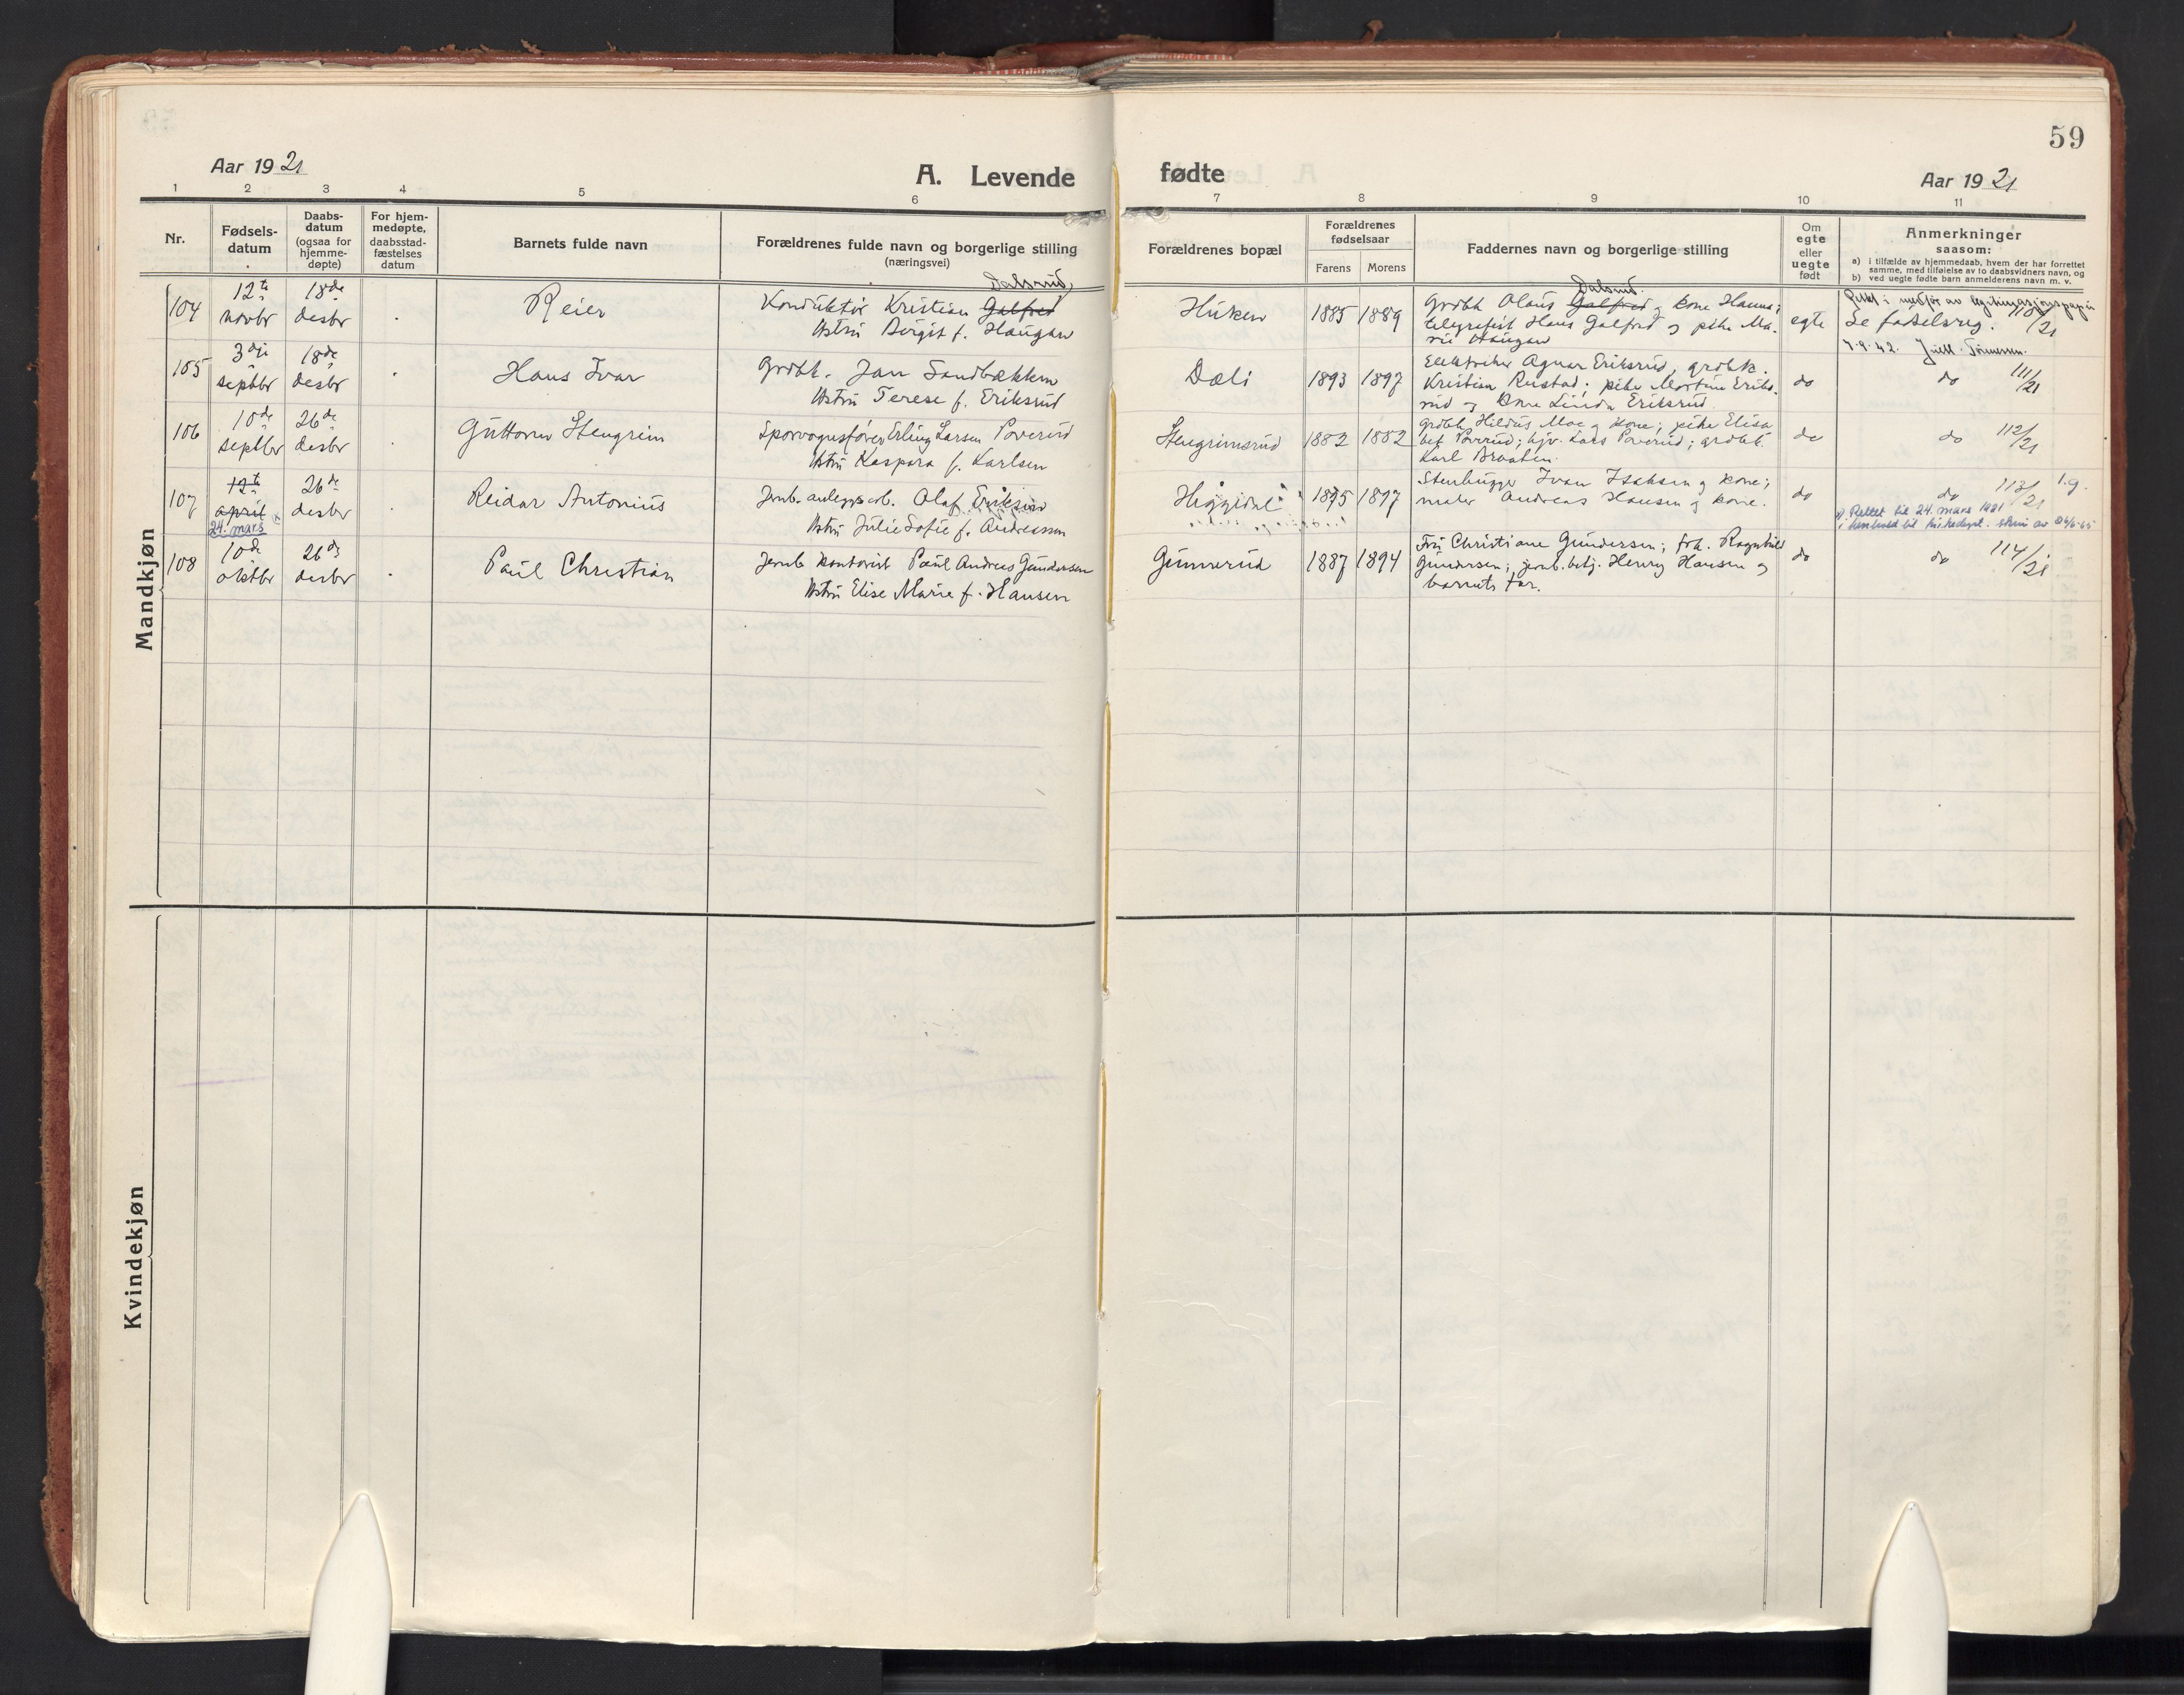 59
Aar 1921
A. Levende
fødte
Aar 1921
1 2 3 4 5 6 7 8 9 10 11
Nr.
Fødsels-
datum
Daabs-
datum
(ogsaa for
hjemme-
døpte)
For hjem-
medøpte,
daabsstad-
fæstelses
datum
Barnets fulde navn
Forældrenes fulde navn og borgerlige stilling
(næringsvei)
Forældrenes bopæl
Forældrenes
fødselsaar
Farens Morens
Faddernes navn og borgerlige stilling
Om
egte
eller
uegte
født
Anmerkninger
saasom:
a) i tilfælde av hjemmedaab, hvem der har forrettet
samme, med tilføielse av to daabsvidners navn, og
b) ved uegte fødte barn anmelderens navn m. v.
Mandkjøn
104
12te
novbr
18de
desbr
Reier
Dalsrud
Konduktør Kristian Galfred
Hstru Borgit f. Haugan
Huken
1885 1889
Dalsrud.
Grdbk Olaus Galfred og kone Hanna;
telegrafist Hans Galfred og pike Ma-
rie Haugan
egte
Rettet i medfør av legitimasjonspapir
Se fødselsreg. /21
7-9-42.
105
3dje
septbr
18de
desbr
Hans Ivar
Grdbk. Jan Sandbækken
Hstru Terese f. Eriksrud
Dæli
1893 1897
Elektriker Agnar Eriksrud, grdbk.
Kristian Rustad; pike Martine Eriks-
rud og kone Linda Eriksrud
do
do 111/21
106
10de
septbr
26de
desbr
Guttorm Stengrim
Sporvognsfører Erling Larsen Poverud
Hstru Kaspara f. Karlsen
Stengrimsrud
1882 1882
Grdbk Hildus Moe og kone; pike Elisa-
bet Poverud; gjv. Lars Poverud; grdbk
Karl Braaten.
do
do 112/21
107
12te
april
24. mars
26de
desbr
Reidar Antonius
Jernb. anleggsarb. Olaf Eriksen
Hstru Julie Sofie f. Andreassen
Heggidal
1895 1897
Stenhugger Ivar Isaksen og kone;
maler Andreas Hansen og kone.
do
do 113/21 1.g.
x) Rettet til 24. mars 1921
i henhold til Kirkedept. skriv av
108
10de
oktbr
26de
desbr
Paul Christian
Jernb kontorist Paul Andreas Gundersen
Hstru Elise Marie f. Hansen
Gunnerud
1887 1894
Fru Christiane Gundersen; frk. Ragnhild
Gundersen; jernb.betj. Henry Hansen og
barnets far.
do
do 114/21
Kvindekjøn